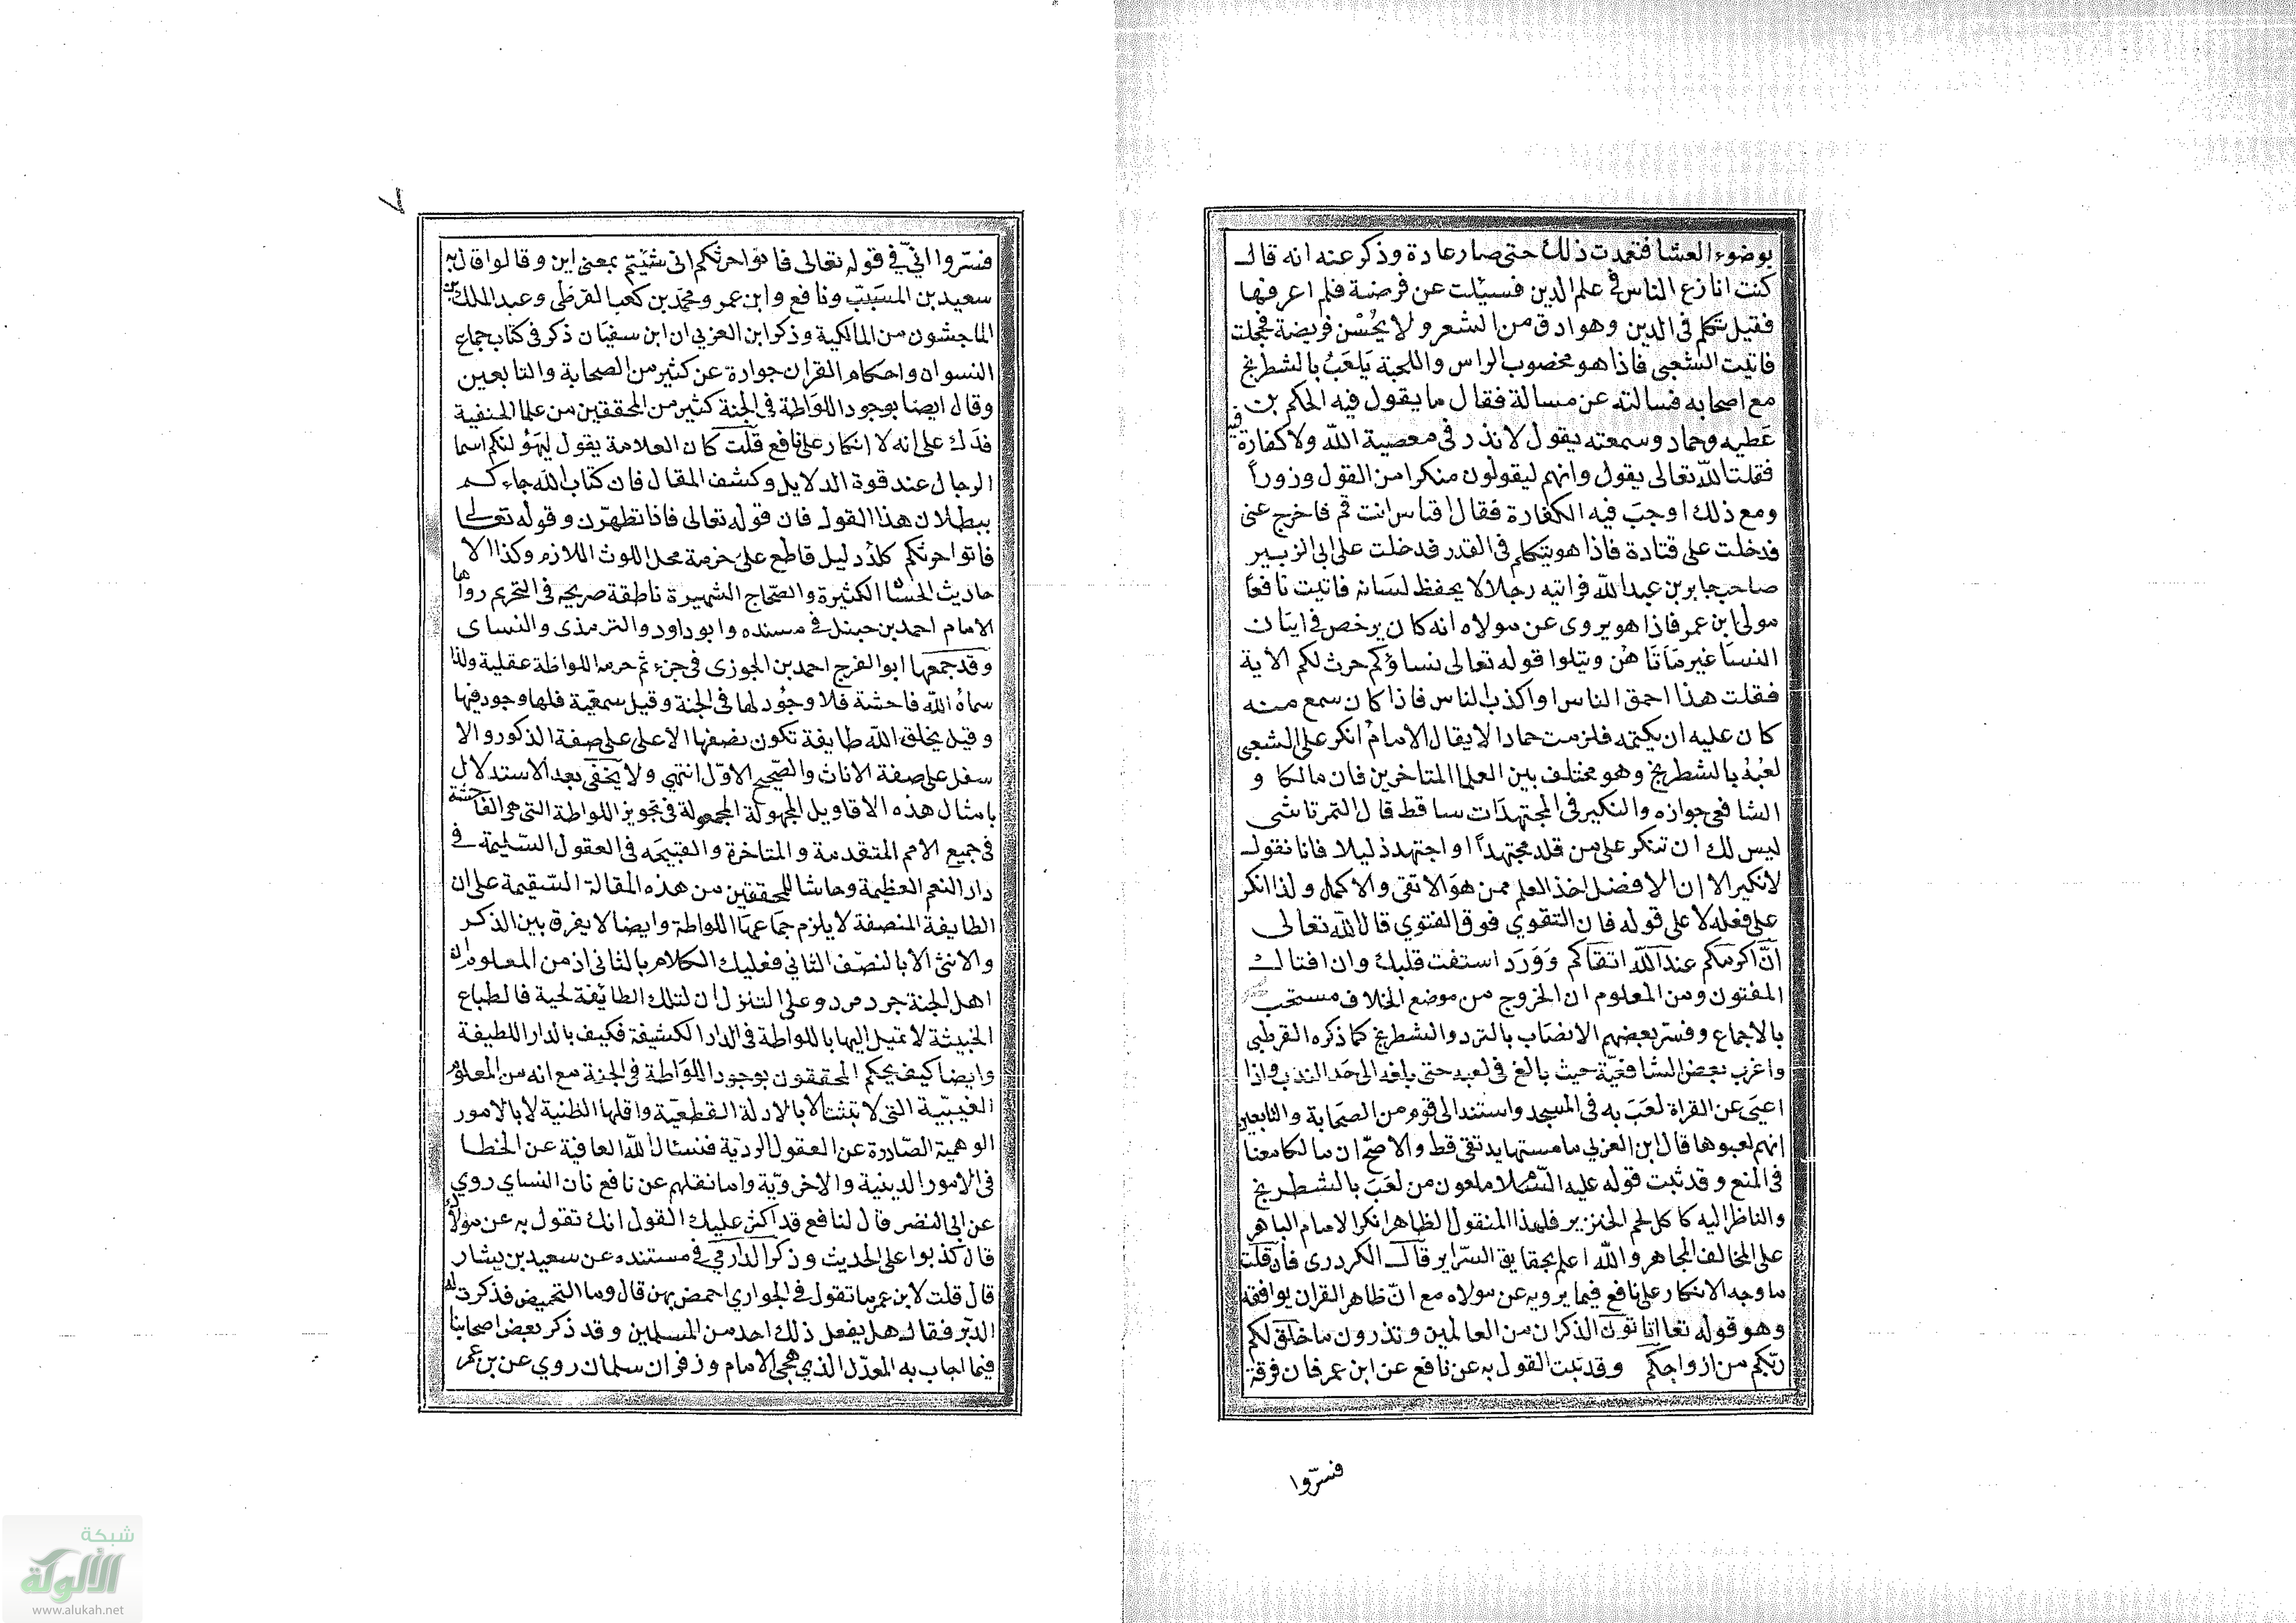 بوضوء العشا فتعمدت ذلك حتى صار عادة وذكر عنه انه قال
كنت انازع الناس في علم الدين فسئلت عن فرضية فلم اعرفها
فقيل تتكلم في الدين وهو ادق من الشعر ولا يُحْسُن فريضة فخجلت
فاتيت الشعبى فاذا هو مخضوب الراس واللحية يَلعَبُ بالشطرنج
مع اصحابه فسالته عن مسالة فقال ما يقول فيه الحكم بن
عَطيه وحماد وسمعته يقول لا نذر في معصية الله ولا كفارة فيه
فقلت الله تعالى يقول وانهم ليقولون منكرا من القول وزوراً
ومع ذلك اوجبَ فيه الكفارة فقال اقياس انت قم فاخرج عنى
فدخلت على قتادة فاذا هو يتكلم فى القدر فدخلت على ابى الزبير
صاحب جابر بن عبد الله فراتيه رجلا لا يحفظ لسَانه فاتيت نافعاً
مولى ابن عمر فاذا هو يروى عن مولاه انه كان يرخص في ايتان
النسَا غير مَاتَا هُن ويتلوا قوله تعالى نساؤكم حرث لكم الاية
فقلت هذا احمق الناس او اكذب الناس فاذا كان سمع منه
كان عليه ان يكتمه فلزمت حمادا لا يقال الامامُ انكر على الشعبى
لعبُهُ بالشطرنج وهو مختلف بين العلما المتاخرين فان مالكا و
الشافعى جوازه والنكير فى المجتهدَات ساقط قال التمرتاشى
ليس لك ان تنكر على من قلد مجتهداً او اجتهد ذليلا فانا نقول
لا نكير الا ان الافضل اخذ العلم ممن هوَ الاتقى والاكمل ولذا انكر
على فعله لا على قوله فان التقوي فوق الفتوي قال الله تعالى
انّ اكرمَكم عند الله اتقاكم وَوَرَد استفت قلبك وان افتاك
المفتون ومن المعلوم ان الخروج من موضع الخلاف مستحب
بالاجماع وفسر بعضهم الانصَاب بالنرد والشطرنج كما ذكره القرطبى
واغرب بعض الشافعيّة حيث بالغ فى لعبه حتى بلغه الى حَد الندب واذا
اعيَى عن القراة لعَبَ به فى المسجد واستند الى قوم من الصحَابة والتابعين
انهم لعبوها قال ابن العزبي ما مستها يد تقى قط والاصحّ ان مالكا معنا
فى المنع وقد ثبت قوله عليه السّلام ملعون من لعَبَ بالشطرنج
والناظر اليه كاكل لحم الخنزير فلهذا المنقول لظاهر انكر الامام الباهر
على المخالف المجاهر والله اعلم بحقايق السّراير قال الكردرى فان قلت
ما وجه الانكار على نافع فيما يرويه عن مولاه مع انّ ظاهر القران يوافقه
وهو قوله تعا اتاتون الذكران من العالمين وتذرون ما خلق لكم
ربّكم من ازواجكم وقد ثبت القول به عن نافع عن ابن عمر فان فرقة
فسّروا
٧
فسّروا انّي في قوله تعالى فاتوا حرثكم انى شئيتم بمعنى اين وقالوا قال به
سعيد بن المسَيبّ ونافع وابن عمر ومحمّد بن كعب القرظى وعبد الملك بن
الماجشون من المالكية وذكر ابن العزبي ان ابن سفيَان ذكر فى كتاب جماع
النسوان واحكام القران جوارة عن كثير من الصحابة والتابعين
وقال ايضا بوجود اللوَاطة فى الجنة كثير من المحققين من علما الحنفية
فدَل على انه لا انكار على نافع قلت كان العلامة يقول ليهَوُلنكم اسما
الرجال عند قوة الدلايل وكشف المقال فان كتاب الله جاءكم
ببطلان هذا القول فان قوله تعالى فاذا تظهرّن وقوله تعالى
فاتوا حرثكم كلٌ دليل قاطع على حرمة محل اللوث اللازم وكذا الا
حاديث الحسَان الكثيرة والصّحاح الشهيرة ناطقة صريحه فى التحريم رواها
الامام احمد بن حبنل في مسنده وابو داود والترمذى والنساى
وقد جمعها ابو الفرج احمد بن الجوزى فى جزء ثم حرمه اللواطة عقلية ولذا
سماهُ الله فاحشة فلا وجُود لها فى الجنة وقيل سمعّية فلها وجود فيها
وقيل يخلق الله طايفة تكون نصفها الاعلى على صفة الذكور والا
سفل على صفة الاناث والصّحيح الاوّل انتهي ولا يَخفى بعد الاستدلال
بامثال هذه الاقاويل المجهولة المجعولة فى تجويز اللواطة التى هى الفاحشة
فى جميع الامم المتقدمة والمتاخرة والقبيحَه فى العقول السّليمَة في
دار النعم العظيمة وحاشا للمحققين من هذه المقالة السّقيمة على ان
الطايفة المنصفة لا يلزم جمَاعهَا اللواطة وايضا لا يفرق بين الذكر
والانثى الا بالنصّف الثاني فعليك الكلام بالثانى اذ من المعلوم ان
اهل الجنة جرد مرد وعلى التنزل ان لتلك الطائفة لحية فالطباع
الخبيثة لا تميل اليها باللواطة فى الدار الكشيفة فكيف بالدار اللطيفة
وايضا كيف يحكم المحققون بوجود اللوَاطة فى الجنة مع انه من المعلوم
الغيبيّة التى لا تثبت الا بالادلة القطعيّة واقلها الظنية لا بالامور
الوهمية الصّادرة عن العقول الرديّة فنسئال الله العافية عن الخطا
فى الامور الدينية والاخرويّة واما نقلهم عن نافع نان النساي روي
عن ابى النضر قال لنافع قد اكثر عليك القول انك تقول به عن مولاك
قال كذبوا على الحديث وذكر الدارمي في مستنده عن سعيد بن يشار
قال قلت لابن عمر ما تقول في الجواري احمض بهن قال وما التحميض فذكرت له
الدبّر فقال هل يفعل ذلك احد من المسلمين وقد ذكر بعض اصحابنا
فيما اجاب به المعدّل الذي هجى الامام وزفر ان سلمان روي عن بن عمر
شبكة
الألوكة
www.alukah.net